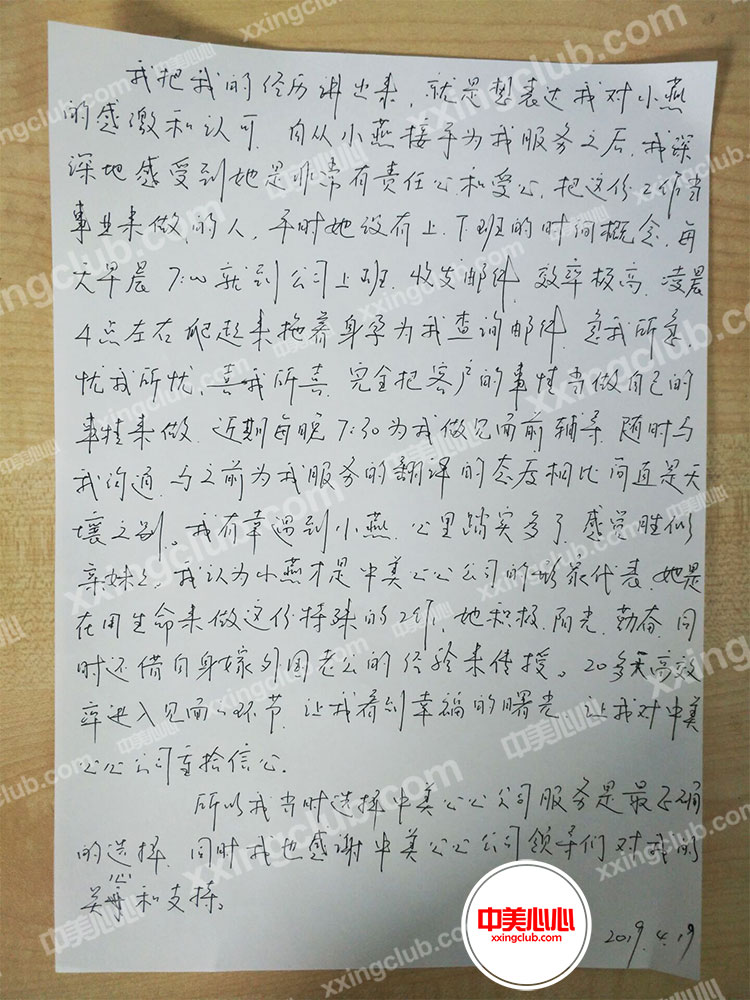 我把我的经历讲出来 就是想表达我对小燕
的感激和认可. 自从小燕接手为我服务之后, 我深
深地感受到她是非常有责任心和爱心, 把这份工作当
事业来做的人, 平时她没有上.下班的时间概念, 每
天早晨7:00就到公司上班. 收发邮件, 效率极高, 凌晨
4点左右爬起来拖着身孕为我查询邮件. 急我所急.
忧我所忧、喜我所喜. 完全把客户的事情当做自己的
事情来做. 近期每晚7:30为我做见面前辅导. 随时与
我沟通, 与之前为我服务的翻译的态度相比简直是天
壤之别。我有幸遇到小燕. 心里踏实多了. 感觉胜似
亲妹妹. 我认为小燕才是中美心心公司的形象代表. 她是
在用生命来做这份特殊的工作, 她积极.阳光.勤奋. 同
时还借自身嫁外国老公的经验来传授。20多天高效
率进入见面心环节. 让我看到幸福的曙光. 让我对中美
心心公司重拾信心.
所以我当时选择中美心心公司服务是最正确
的选择. 同时我也感谢中美心心公司领导们对我的
关心和支持。
2019.4.19
中美心心
xxingclub.com